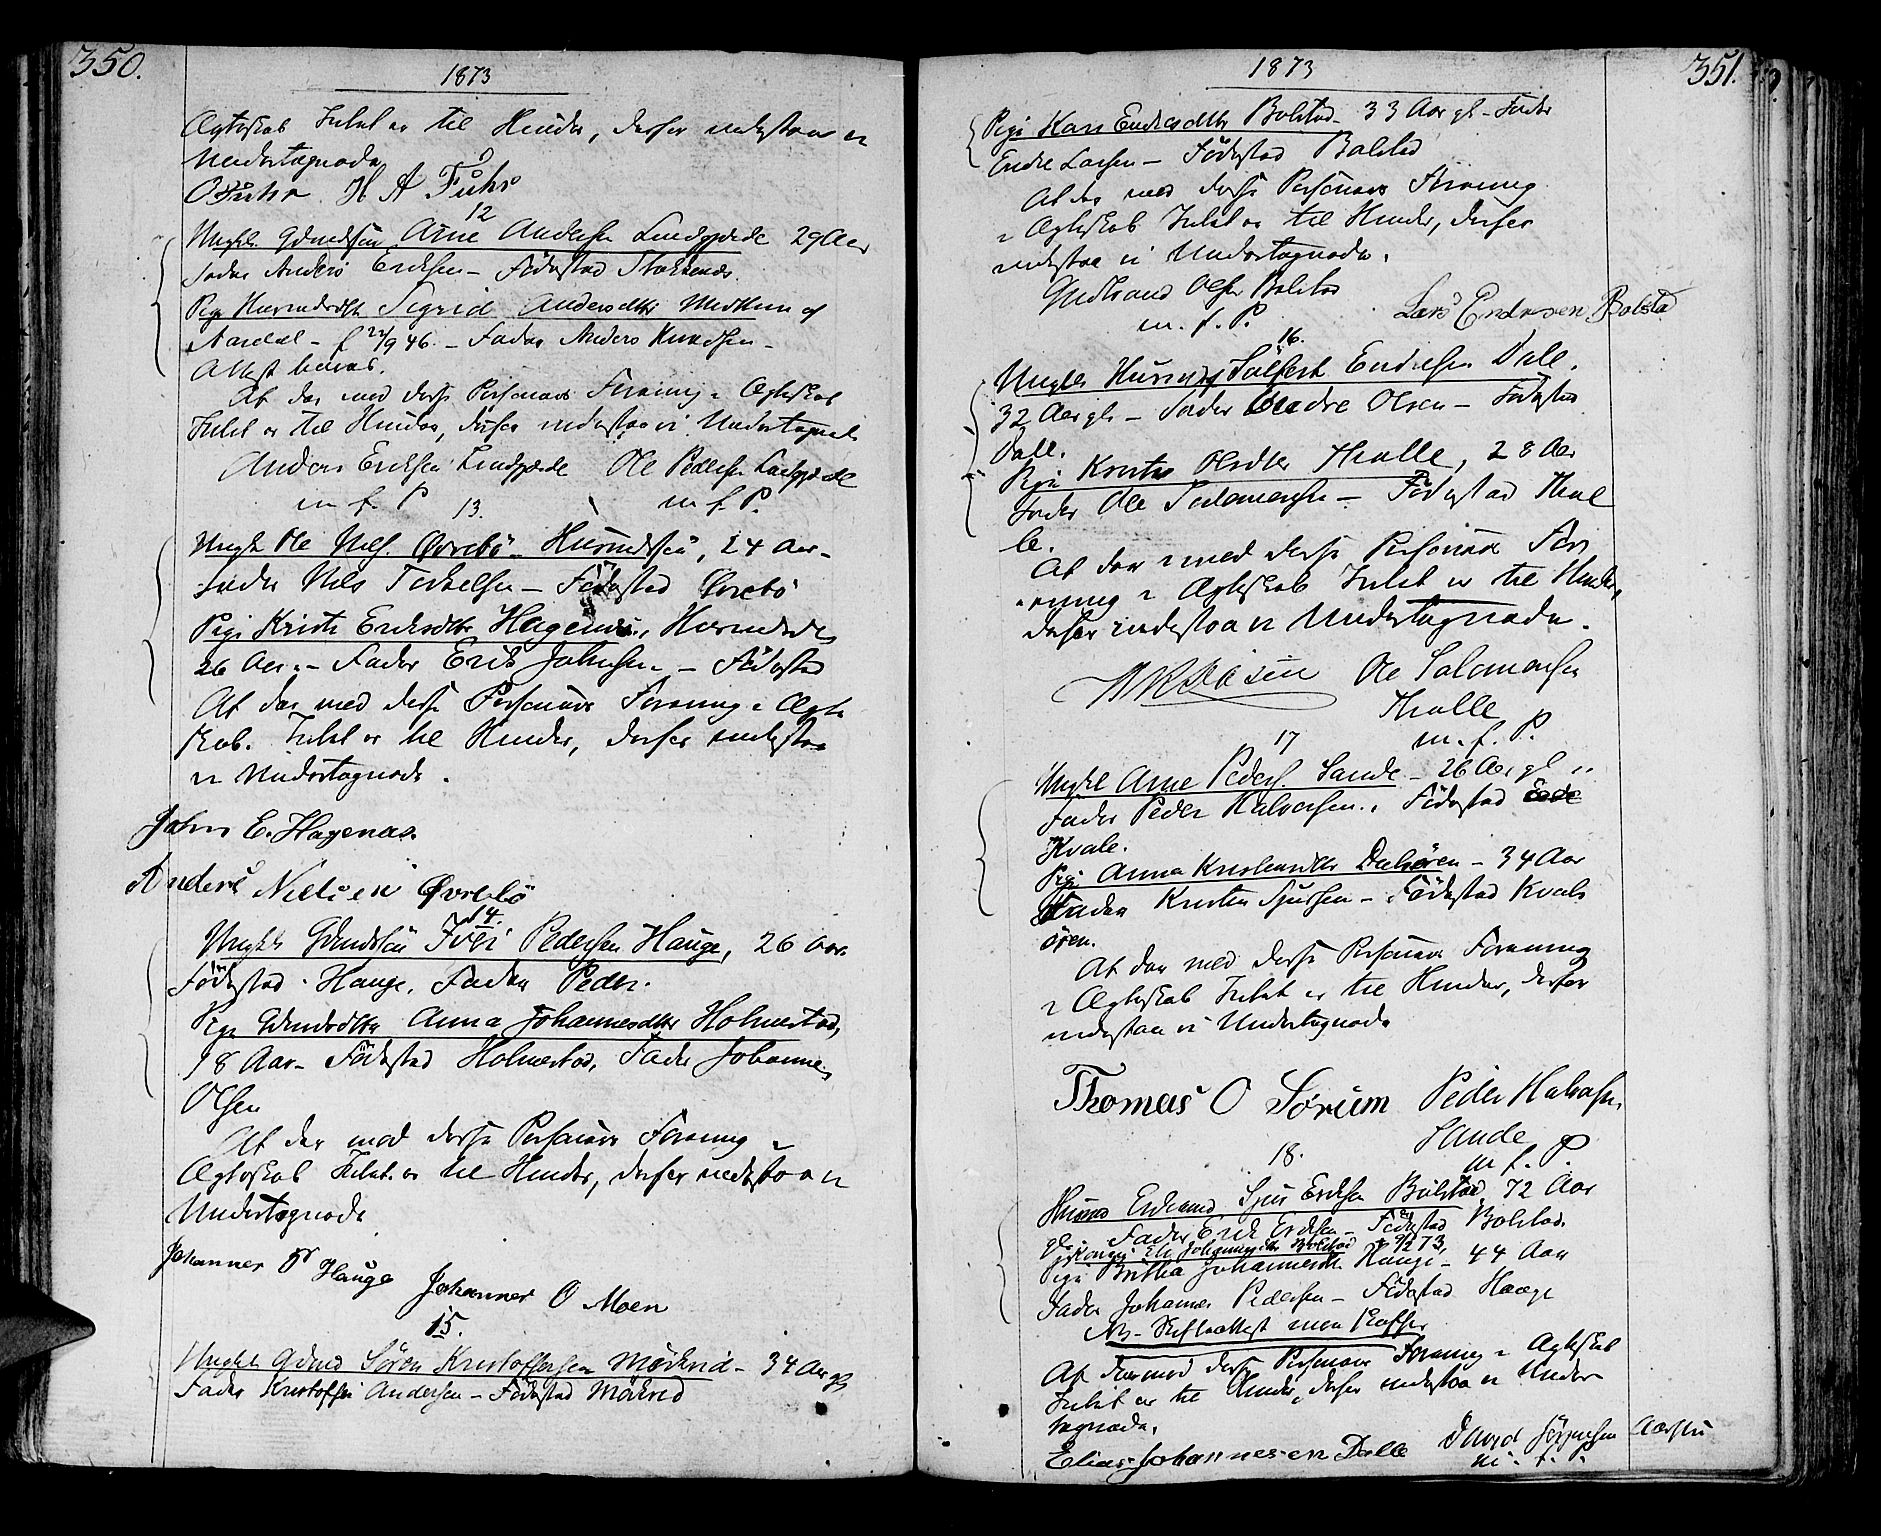 350.
1873
Ægteskab Intet er til Hinder, derfor indestaa vi
Undertegnede
O Fuhr H A Fuhr
12
Ungkl. Gdmdsøn Arne Andersen Lindgjerde 29 Aar
Fader Anders Eriksen – Fødested
Pige Huusmdsdtr Sigrid Andersdtr af
Aardal – f 22/9 46. – Fader Anders Knudsen –
Attest
At der med disse Personers Forening i Ægteskab
Intet er til Hinder, derfor indestaa vi Undertegnede
Anders Eriksen Lindgjerde Ole Pedersen
m. f. P m. f. P.
13.
Ungk Ole Nils. Øvrebø – Huusmdsøn, 24 Aar –
Fader Nils Terkelsen – Fødested Øvrebø
Pige Kristi Eriksdtr Hagenæs, Huusmdsdtr
26 Aar – Fader Erik Johnsen – Fødested
At der med disse Personers Forening i Ægte
skab. Intet er til Hinder, derfor indestaa
vi Undertegnede.
John E. Hagenæs.
Anders Nielsen Øvrebø
14.
Ungkl Gdmdsøn Iver Pedersen Hauge, 26 Aar.
Fødested Hauge, Fader Peder.
Pige Gdmdsdtr Anna Johannesdtr Holmestad,
18 Aar – Fødested Holmestad, Fader Johannes
Olsen
At der med disse Personers Forening i
Ægteskab Intet er til Hinder, derfor indestaa vi
Undertegnede
Johannes P Hauge Johannes O Moen
15.
Ungkl Gdmd Søren Kristoffersen Mørkrid – 34 Aar gl
Fader Kristoffer Andersen – Fødested Mørkrid
351.
1873
Pige Kari Endresdtr Bolstad – 33 Aar gl – Fader
Endre Larsen – Fødested Bolstad
At der med disse Personers Forening
i Ægteskab Intet er til Hinder, derfor
indestaa vi Undertegnede.
Olsen Bolstad
m. f. P. Lars Endresen Bolstad
16.
Ungkl. Huusmd Sølfest Endresen Dale.
32 Aar gl – Fader Endre Olsen – Fødested
Dale.
Pige Kristi Olsdtr Thalle, 28 Aar
Fader Ole Salomonsen – Fødested Thal
le.
At der i med disse Personers For
ening i Ægteskab Intet er til Hinder,
derfor indestaa vi Undertegnede.
Ole Salomonsen
Thalle
m. f. P.
17
Ungkl Arne Peders. Sande – 26 Aar gl
Fader Peder Halvorsen, Fødested
Kvale.
Pige Anna Kristensdtr Dalsøren – 34 Aar
Fader Kristen Sjursen – Fødested Kvals
øren.
At der med disse Personers Forening
i Ægteskab Intet er til Hinder, derfor
indestaa vi Undertegnede
Thomas O Sørum Peder Halvorsen
Sande
m. f. P.
18.
Huusmd Enkemd Sjur Eriksen Bolstad, 72 Aar
gl. Fader Erik Eriksen – Fødested Bolstad.
Johannesdtr Bolstad 73,
Pige Britha Johannesdtr Hauge – 44 Aar
Fader Johannes Pedersen – Fødested Hauge
Nb – Skifteattest maa skaffes
At der med disse Personers Forening i Ægteskab
Intet er til Hinder, derfor indestaa vi Under-
tegnede.
Elias Johannesen Dalle David Jørgensen
m. f. P.